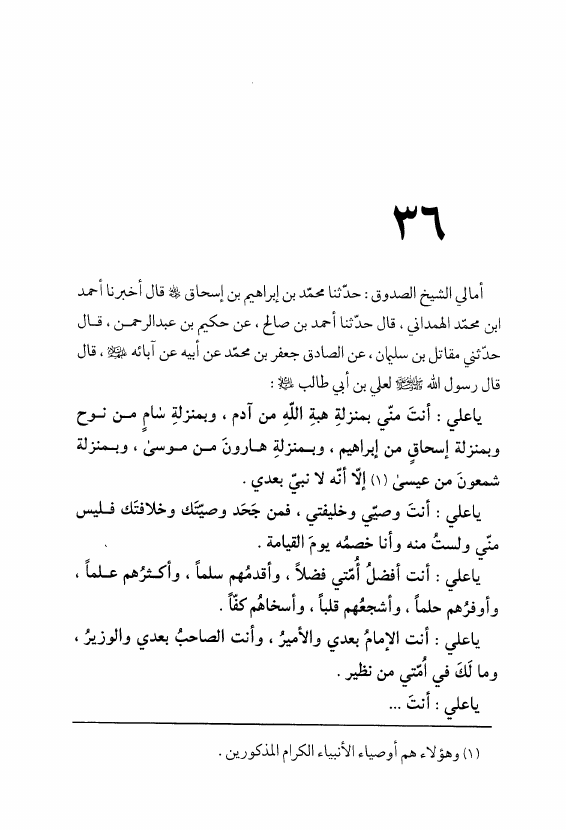 ٣٦
أمالي الشيخ الصدوق : حدّثنا محمّد بن إبراهيم بن إسحاق ﷺ قال أخبرنا أحمد
ابن محمّد الهمداني ، قال حدّثنا أحمد بن صالح ، عن حكيم بن عبدالرحمـن ، قـال
حدّثني مقاتل بن سليمان ، عن الصادق جعفر بن محمّد عن أبيه عن آبائه ، قال
قال رسول الله ﷺ لعلي بن أبي طالب :
ياعلي : أنتَ منّي بمنزلةِ هبةِ اللّهِ من آدم ، وبمنزلةِ سٰامٍ مـن نـوح
وبمنزلة إسحاقٍ من إبراهيم ، وبـمنزلةِ هـارونَ مـن مـوسىٰ ، وبـمنزلة
شمعونَ من عيسىٰ (١) إلّا أنّه لا نبيّ بعدي .
ياعلي : أنتَ وصيّي وخليفتي ، فمن جَحَد وصيّتَك وخلافتَك فـليس
منّي ولستُ منه وأنا خصمُه يومَ القيامة .
ياعلي : أنت أفضلُ أُمّتي فضلاً ، وأقدمُهم سلماً ، وأكـثرُهم عـلماً ،
وأوفرُهم حلماً ، وأشجعُهم قلباً ، وأسخاهُم كفّاً .
ياعلي : أنت الإمامُ بعدي والأميرُ ، وأنت الصاحبُ بعدي والوزيرُ ،
وما لَكَ في أُمّتي من نظير .
ياعلي : أنتَ ...
(١) وهؤلاء هم أوصياء الأنبياء الكرام المذكورين .